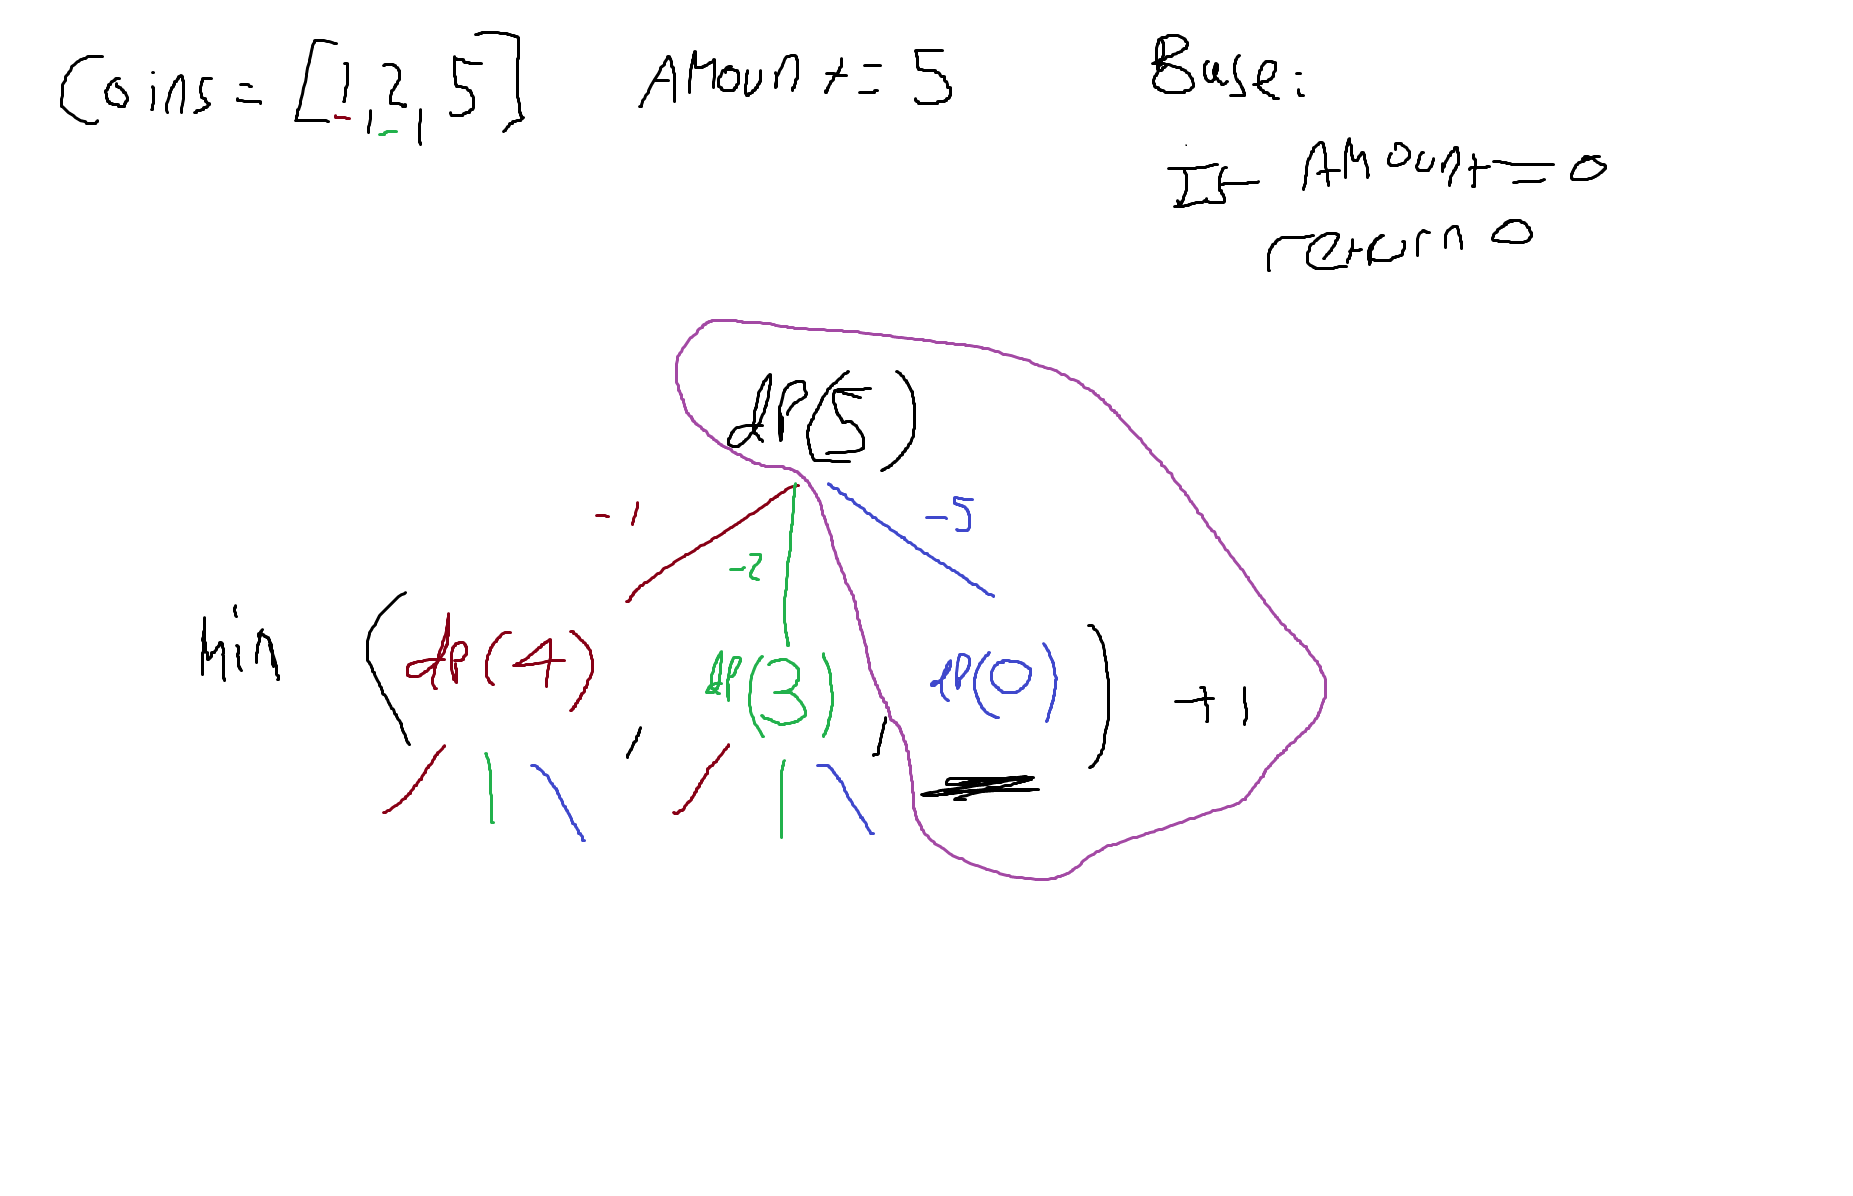 Coins = [1,2,5] Amount = 5 Base:
If Amount == 0
return 0
dP(5)
-1 -2 -5
Min (dp(4), dP(3), dP(0)) +1